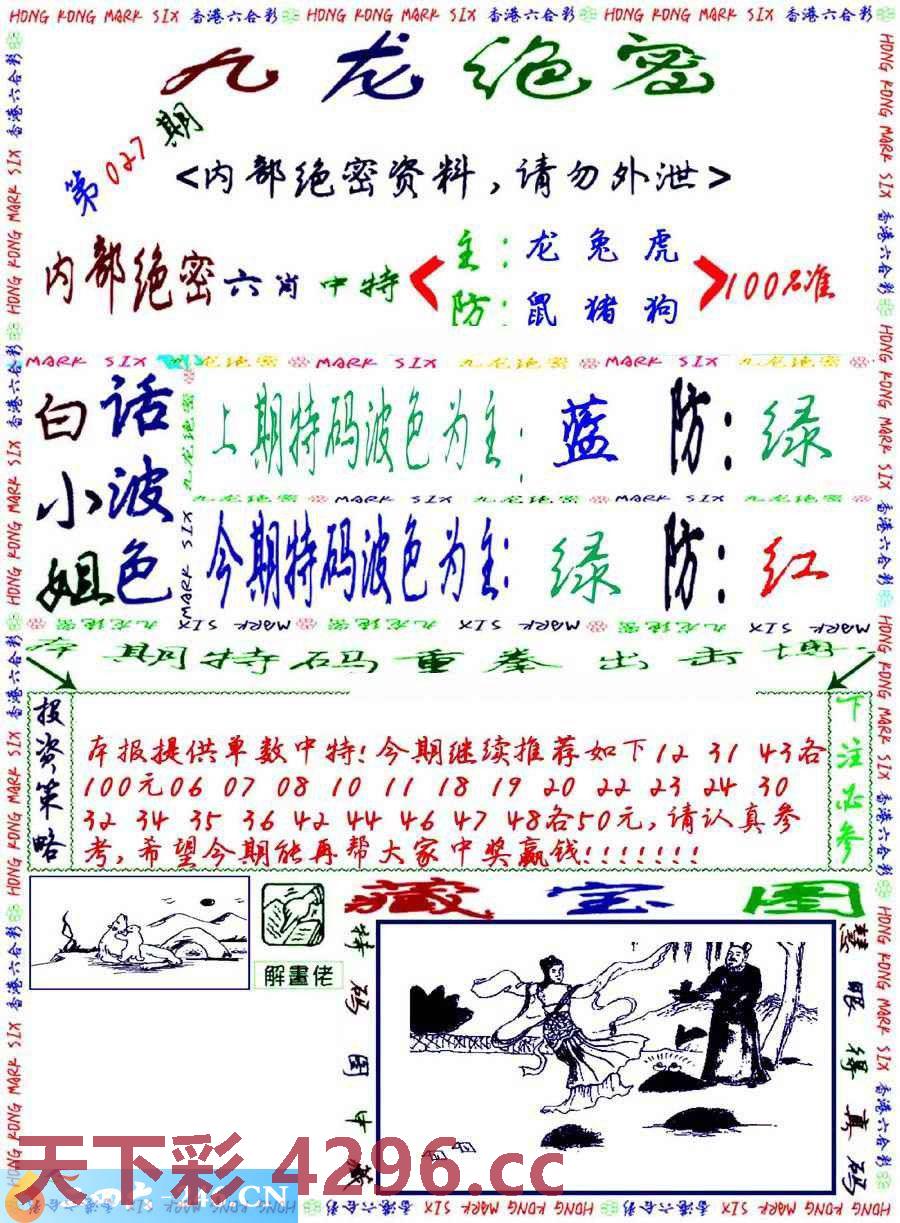 HONG KONG MARK SIX 香港六合彩 HONG KONG MARK SIX 香港六合彩 HONG KONG MARK SIX 香港六合彩
九龙绝密
第027期
<内部绝密资料,请勿外泄>
内部绝密六肖中特
主:龙兔虎
防:鼠猪狗
100%准
MARK SIX 九龙绝密 MARK SIX 九龙绝密 MARK SIX 九龙绝密
白小姐
话波色
上期特码波色为主: 蓝 防: 绿
九龙绝密 MARK SIX 九龙绝密 MARK SIX 九龙绝密
今期特码波色为主: 绿 防: 红
本期特码重拳出击
投资策略
本报提供单数中特!今期继续推荐如下12 31 43各
100元06 07 08 10 11 18 19 20 22 23 24 30
32 34 35 36 42 44 46 47 48各50元,请认真参
考,希望今期能再帮大家中奖赢钱!!!!!!!
下注必参
解畫佬
藏宝图
特码图中
慧眼得真码
天下彩 4296.cc